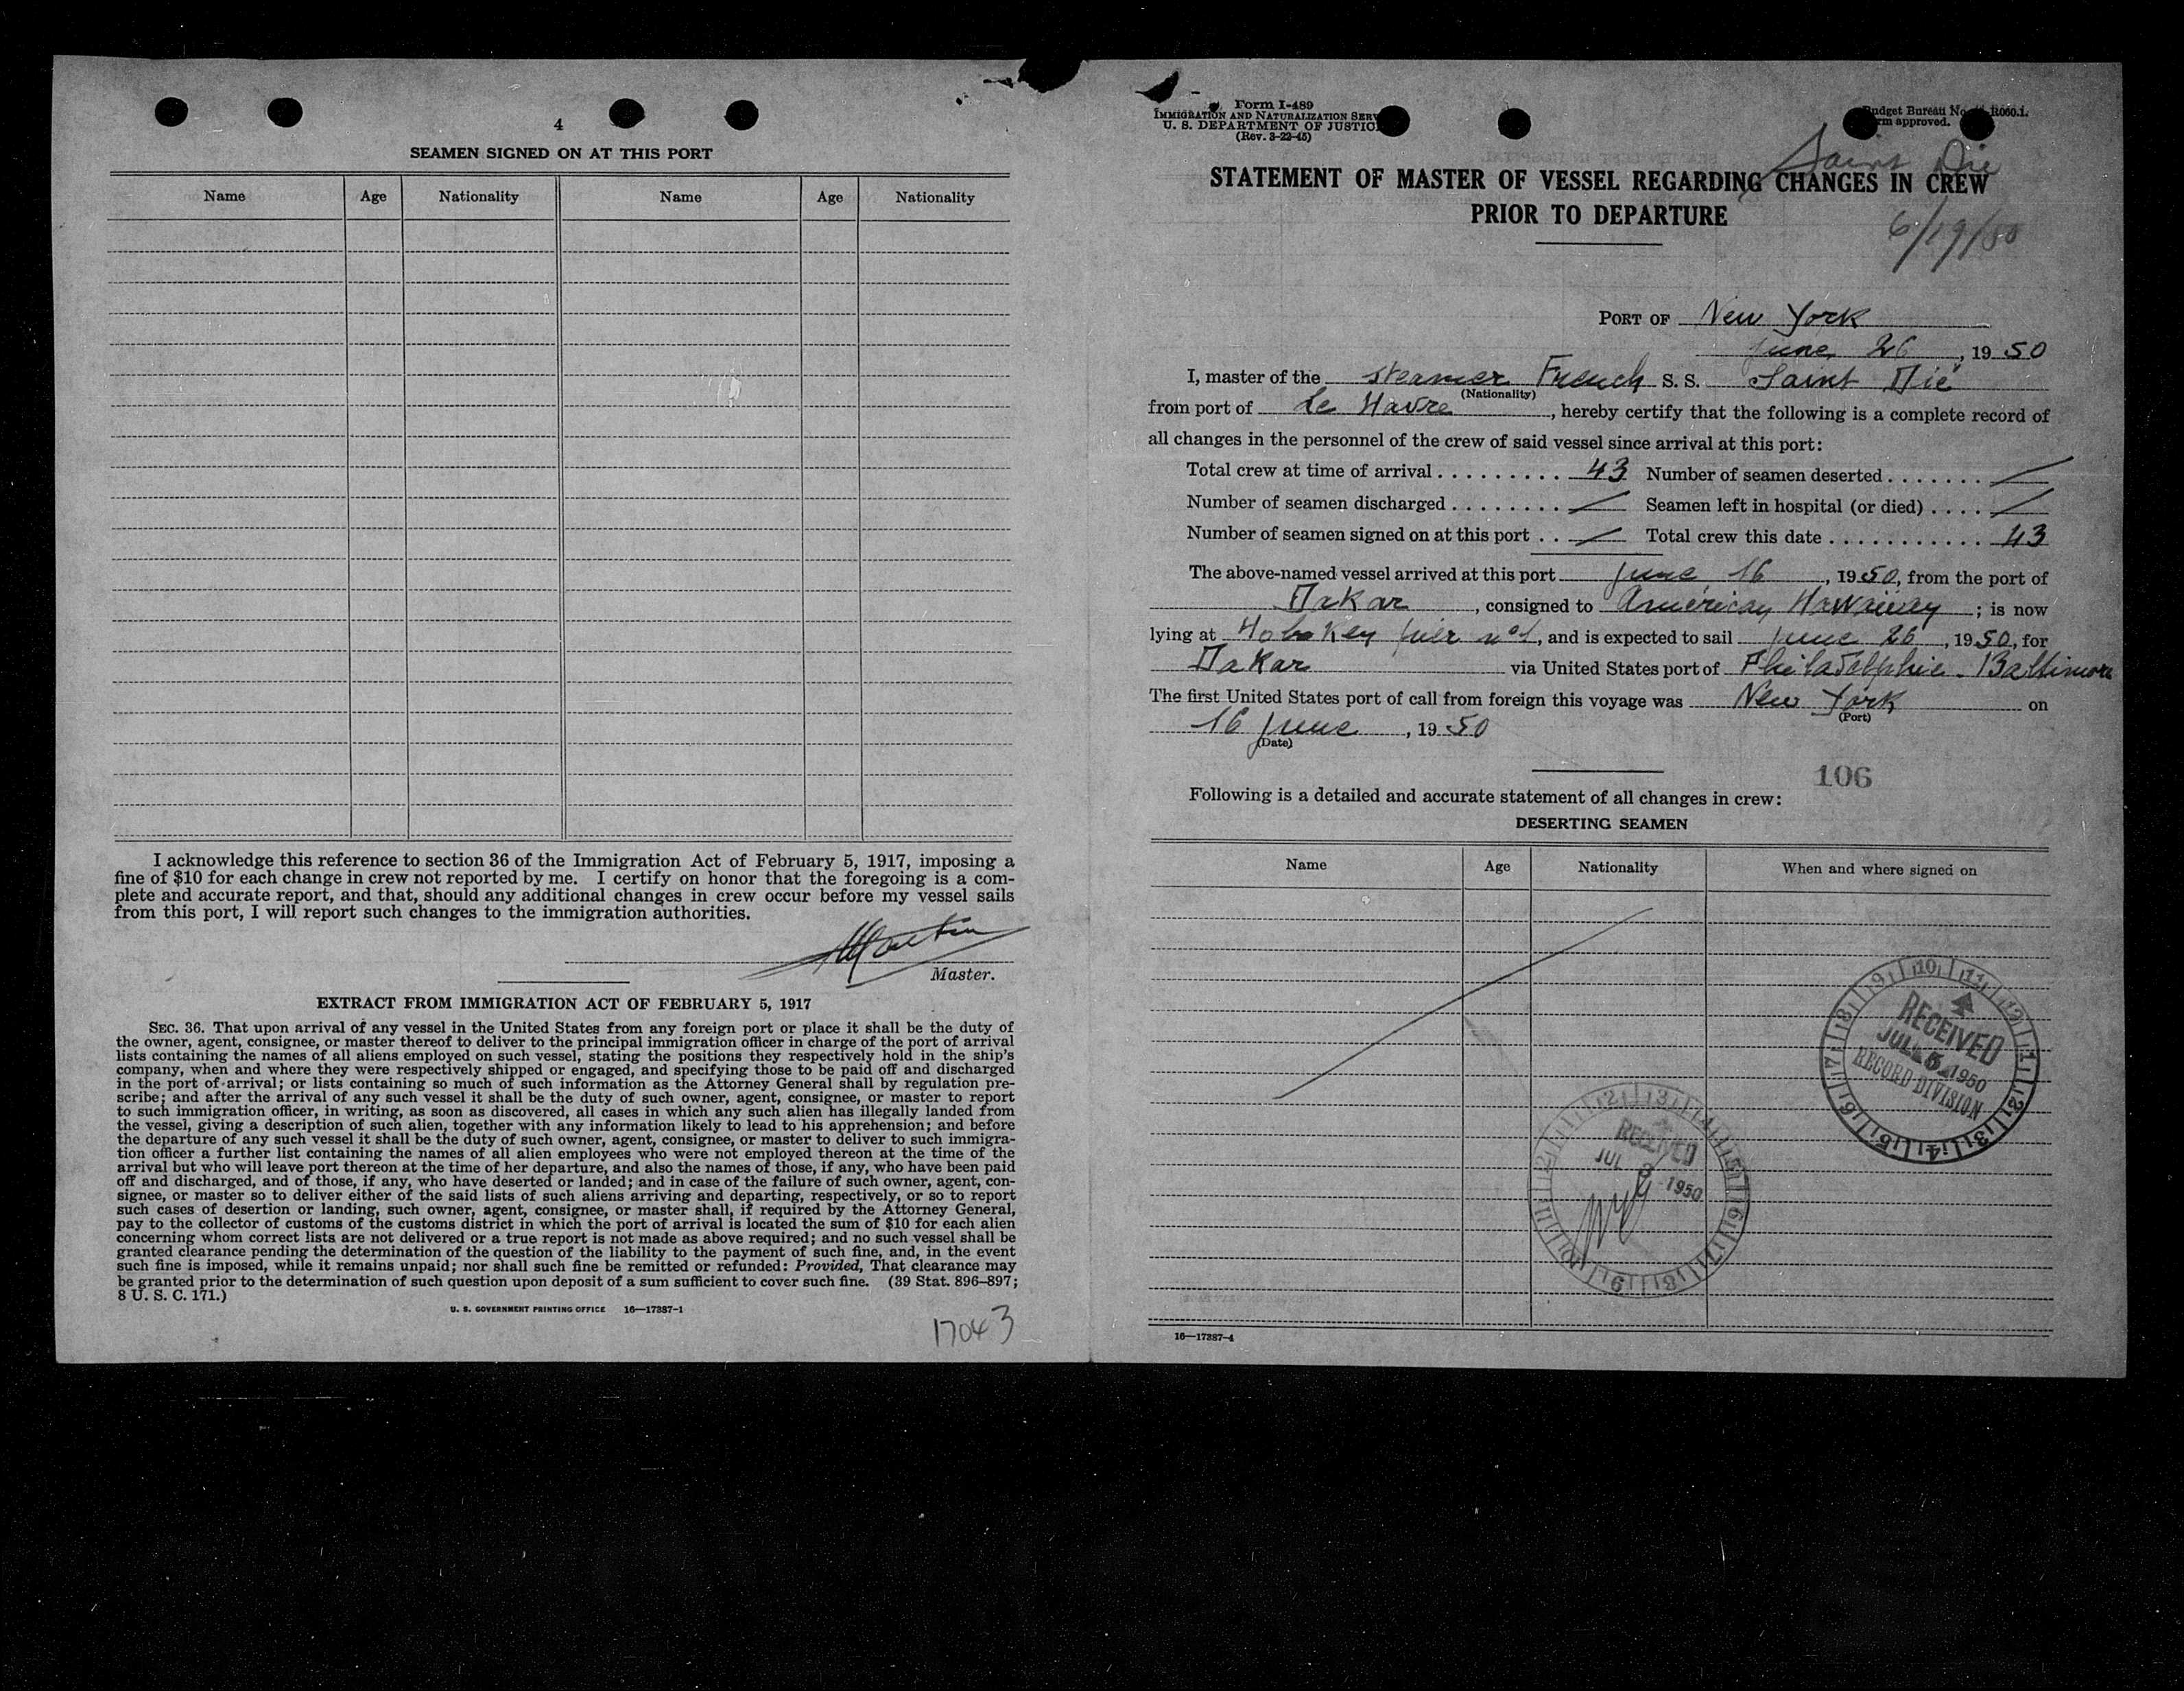 4
SEAMEN SIGNED ON AT THIS PORT
Name Age Nationality Name Age Nationality
I acknowledge this reference to section 36 of the Immigration Act of February 5, 1917, imposing a
fine of $10 for each change in crew not reported by me. I certify on honor that the foregoing is a com-
plete and accurate report, and that, should any additional changes in crew occur before my vessel sails
from this port, I will report such changes to the immigration authorities.
Master.
EXTRACT FROM IMMIGRATION ACT OF FEBRUARY 5, 1917
SEC. 36. That upon arrival of any vessel in the United States from any foreign port or place it shall be the duty of
the owner, agent, consignee, or master thereof to deliver to the principal immigration officer in charge of the port of arrival
lists containing the names of all aliens employed on such vessel, stating the positions they respectively hold in the ship's
company, when and where they were respectively shipped or engaged, and specifying those to be paid off and discharged
in the port of arrival; or lists containing so much of such information as the Attorney General shall by regulation pre-
scribe; and after the arrival of any such vessel it shall be the duty of such owner, agent, consignee, or master to report
to such immigration officer, in writing, as soon as discovered, all cases in which any such alien has illegally landed from
the vessel, giving a description of such alien, together with any information likely to lead to his apprehension; and before
the departure of any such vessel it shall be the duty of such owner, agent, consignee, or master to deliver to such immigra-
tion officer a further list containing the names of all alien employees who were not employed thereon at the time of the
arrival but who will leave port thereon at the time of her departure, and also the names of those, if any, who have been paid
off and discharged, and of those, if any, who have deserted or landed; and in case of the failure of such owner, agent, con-
signee, or master so to deliver either of the said lists of such aliens arriving and departing, respectively, or so to report
such cases of desertion or landing, such owner, agent, consignee, or master shall, if required by the Attorney General,
pay to the collector of customs of the customs district in which the port of arrival is located the sum of $10 for each alien
concerning whom correct lists are not delivered or a true report is not made as above required; and no such vessel shall be
granted clearance pending the determination of the question of the liability to the payment of such fine, and, in the event
such fine is imposed, while it remains unpaid; nor shall such fine be remitted or refunded: Provided, That clearance may
be granted prior to the determination of such question upon deposit of a sum sufficient to cover such fine. (39 Stat. 896–897;
8 U. S. C. 171.)
U. S. GOVERNMENT PRINTING OFFICE 16—17387-1
17043
Form I-489
IMMIGRATION AND NATURALIZATION SERV
U. S. DEPARTMENT OF JUSTIC
(Rev. 3-22-45)
Budget Bureau No. R060.1.
rm approved.
Saint Die
STATEMENT OF MASTER OF VESSEL REGARDING CHANGES IN CREW
PRIOR TO DEPARTURE
6/19/50
PORT OF New York
June 26, 1950
I, master of the steamer French S. S. Saint Dié
(Nationality)
from port of Le Havre, hereby certify that the following is a complete record of
all changes in the personnel of the crew of said vessel since arrival at this port:
Total crew at time of arrival . . . . . . . . . 43 Number of seamen deserted . . . . . . . /
Number of seamen discharged . . . . . . . . / Seamen left in hospital (or died) . . . . /
Number of seamen signed on at this port . . / Total crew this date . . . . . . . . . . . . 43
The above-named vessel arrived at this port June 16, 1950, from the port of
Dakar, consigned to American Hawaiiay; is now
lying at Hoboken pier n°1, and is expected to sail June 26, 1950, for
Dakar via United States port of Philadelphie - Baltimore
The first United States port of call from foreign this voyage was New York on
(Port)
16 June, 1950
(Date)
106
Following is a detailed and accurate statement of all changes in crew:
DESERTING SEAMEN
Name Age Nationality When and where signed on
RECEIVED
JUL 5 1950
RECORD DIVISION
RECEIVED
JUL 3 1950
16—17387-4